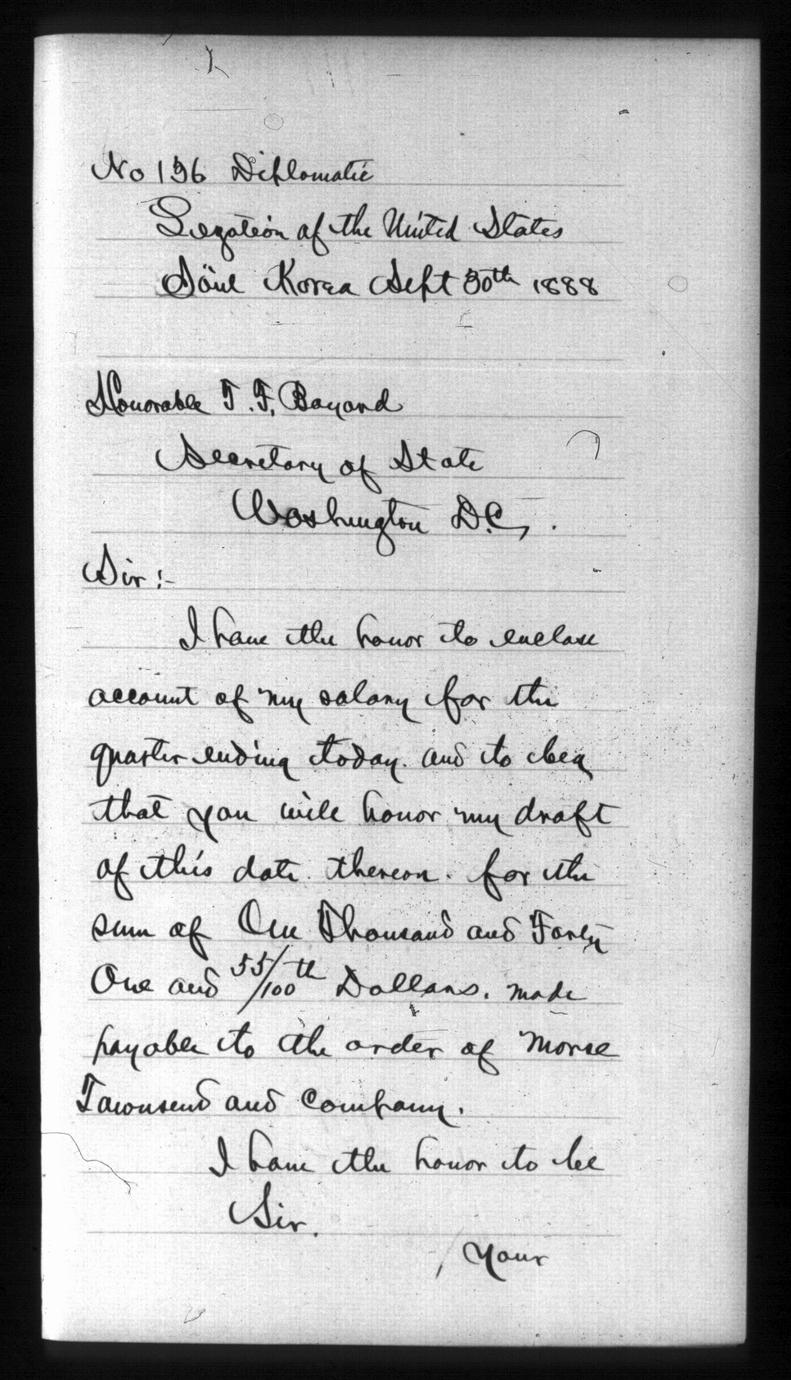 No 136 Diplomatic
Legation of the United States
Söul Korea Sept 30th 1888
Honorable T. F. Bayard
Secretary of State
Washington D.C,.
Sir:-
I have the honor to enclose
account of my salary for the
quarter ending today. and to beg
that you will honor my draft
of this date thereon. for the
sum of One Thousand and Forty
One and 55/100th Dollars. made
payable to the order of Morse
Townsend and Company.
I have the honor to be
Sir.
Your